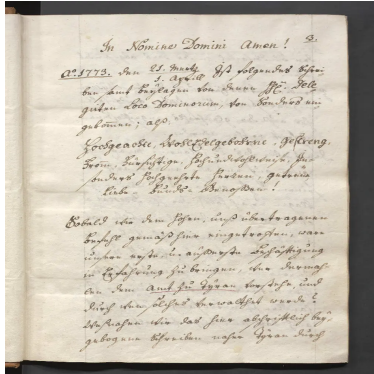 3.
In Nomine Domini Amen!
Aº. 1773. den 21. Martÿ
1. Aprill Ist folgendes Schrei-
ben samt Beÿlagen von denen HH. Dele-
guten Loco Dominorum, von Sonders ein-
gekommen; als:
Hochgeachte, WohlEdelgebohrne, Gestreng,
From, Fürsichtige, Hochundwohlweise, In-
sonders Hochgeehrte Herren, getreüe
liebe Bunds-Genoßen!
Sobald wir dem Hohen, unß übertragenen
Befehl gemäß hier eingetroffen, ware
unsere erste u: aüßerste Beschäftigung
in Erfahrung zu bringen, wer dermah-
len dem Amt zu Tÿran vorstehe, und
durch wen solches verwaltet werde?
Weßnahen wir das hier abschriftlich beÿ-
gebogene Schreiben naher Tÿran durch